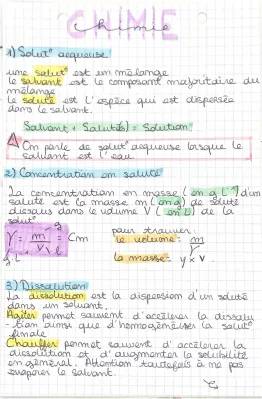 CHIMIE
chimie
1) Solut° aequeuse
une solut° est en mélange
le solvant est le composant majoritaire du
mélange
le soluté est l'espèce qui est dispersée
dans le solvant.
Solvant + Soluté(s) = Solution
On parle de solut° aequeuse lorsque le
solvant est l'eau
2) Concentration en soluté
La concentration en masse (en g.L⁻¹) d'un
soluté est la masse m (en g) de soluté
dissous dans le volume V (en L) de la
solut°
γ = m/V = Cm
g
L
g.L⁻¹
pour trouver :
le volume : m/γ
la masse : γ × V
3) Dissolution
La dissolution est la dispersion d'un soluté
dans un solvant.
Agiter permet souvent d'accélérer la dissolu
-tion ainsi que d'homogénéiser la solut°
finale
Chauffer permet souvent d'accélérer la
dissolution et d'augmenter la solubilité
en général. Attention toutefois à ne pas
évaporer le solvant.